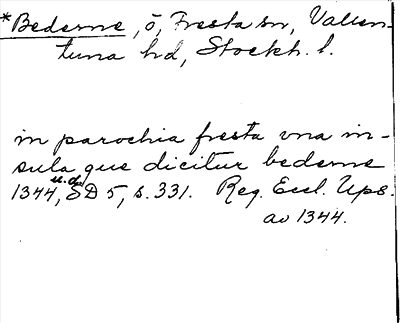 *Bederne, ö, Fresta sn, Vallen-
tuna hd, Stockh. l.
in parochia fresta vna in-
sula que dicitur bederne
1344 u.d., SD 5, s. 331. Reg. Eccl. Ups.
av 1344.